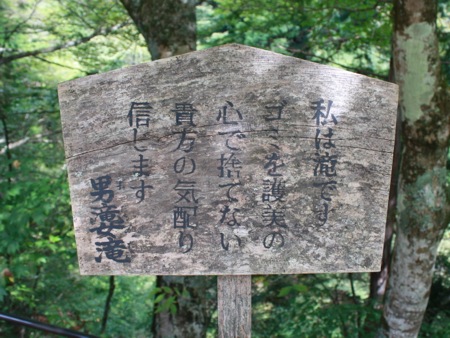 私は滝です
ゴミを護美の
心で捨てない
貴方の気配り
信します
男要滝